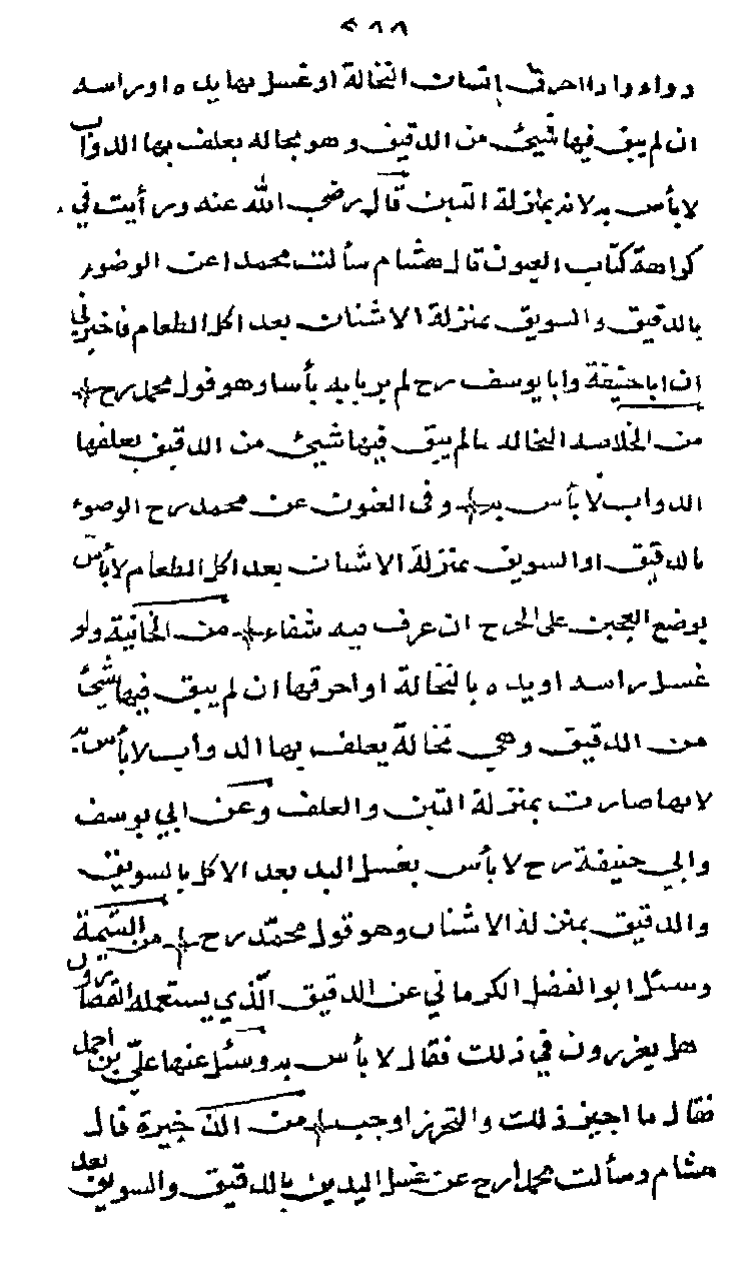 ٢٨٨
دواء واذا احرق إنسان النخالة او غسل بها يده او راسه
ان لم يبق فيها شيئ من الدقيق وهو نخاله يعلف بها الدواب
لا بأس به لانه بمنزلة التبن قال رضي الله عنه ورأيت في
كراهة كتاب العيون قال هشام سألت محمدا عن الوضوء
بالدقيق والسويق بمنزلة الاشنان بعد اكل الطعام فاخبرني
ان ابا حنيفة وابا يوسف رح لم يريا به بأسا وهو قول محمد رح
من الخلاصه النخاله مالم يبق فيها شيئ من الدقيق يعلفها
الدواب لا بأس به وفي العيون عن محمد رح الوضوء
بالدقيق او السويق بمنزلة الاشنان بعد اكل الطعام لا بأس
بوضع العجين على الجرح ان عرف فيه شفاء من الخانية ولو
غسل راسه او يده بالنخالة او احرقها ان لم يبق فيها شيئ
من الدقيق وهي نخالة يعلف بها الدواب لا بأس به
لانها صارت بمنزلة التبن والعلف وعن ابي يوسف
وابي حنيفة رح لا بأس بغسل اليد بعد الاكل بالسويق
والدقيق بمنزلة الاشنان وهو قول محمّد رح من اليتيمة
وسئل ابو الفضل الكرماني عن الدقيق الّذي يستعمله القصارون
هل يعزرون في ذلك فقال لا بأس به وسئل عنها عليّ بن احمد
فقال ما اجيز ذلك والتحرز اوجب من الذخيرة قال
هشام وسألت محمدا رح عن غسل اليدين بالدقيق والسويق بعد